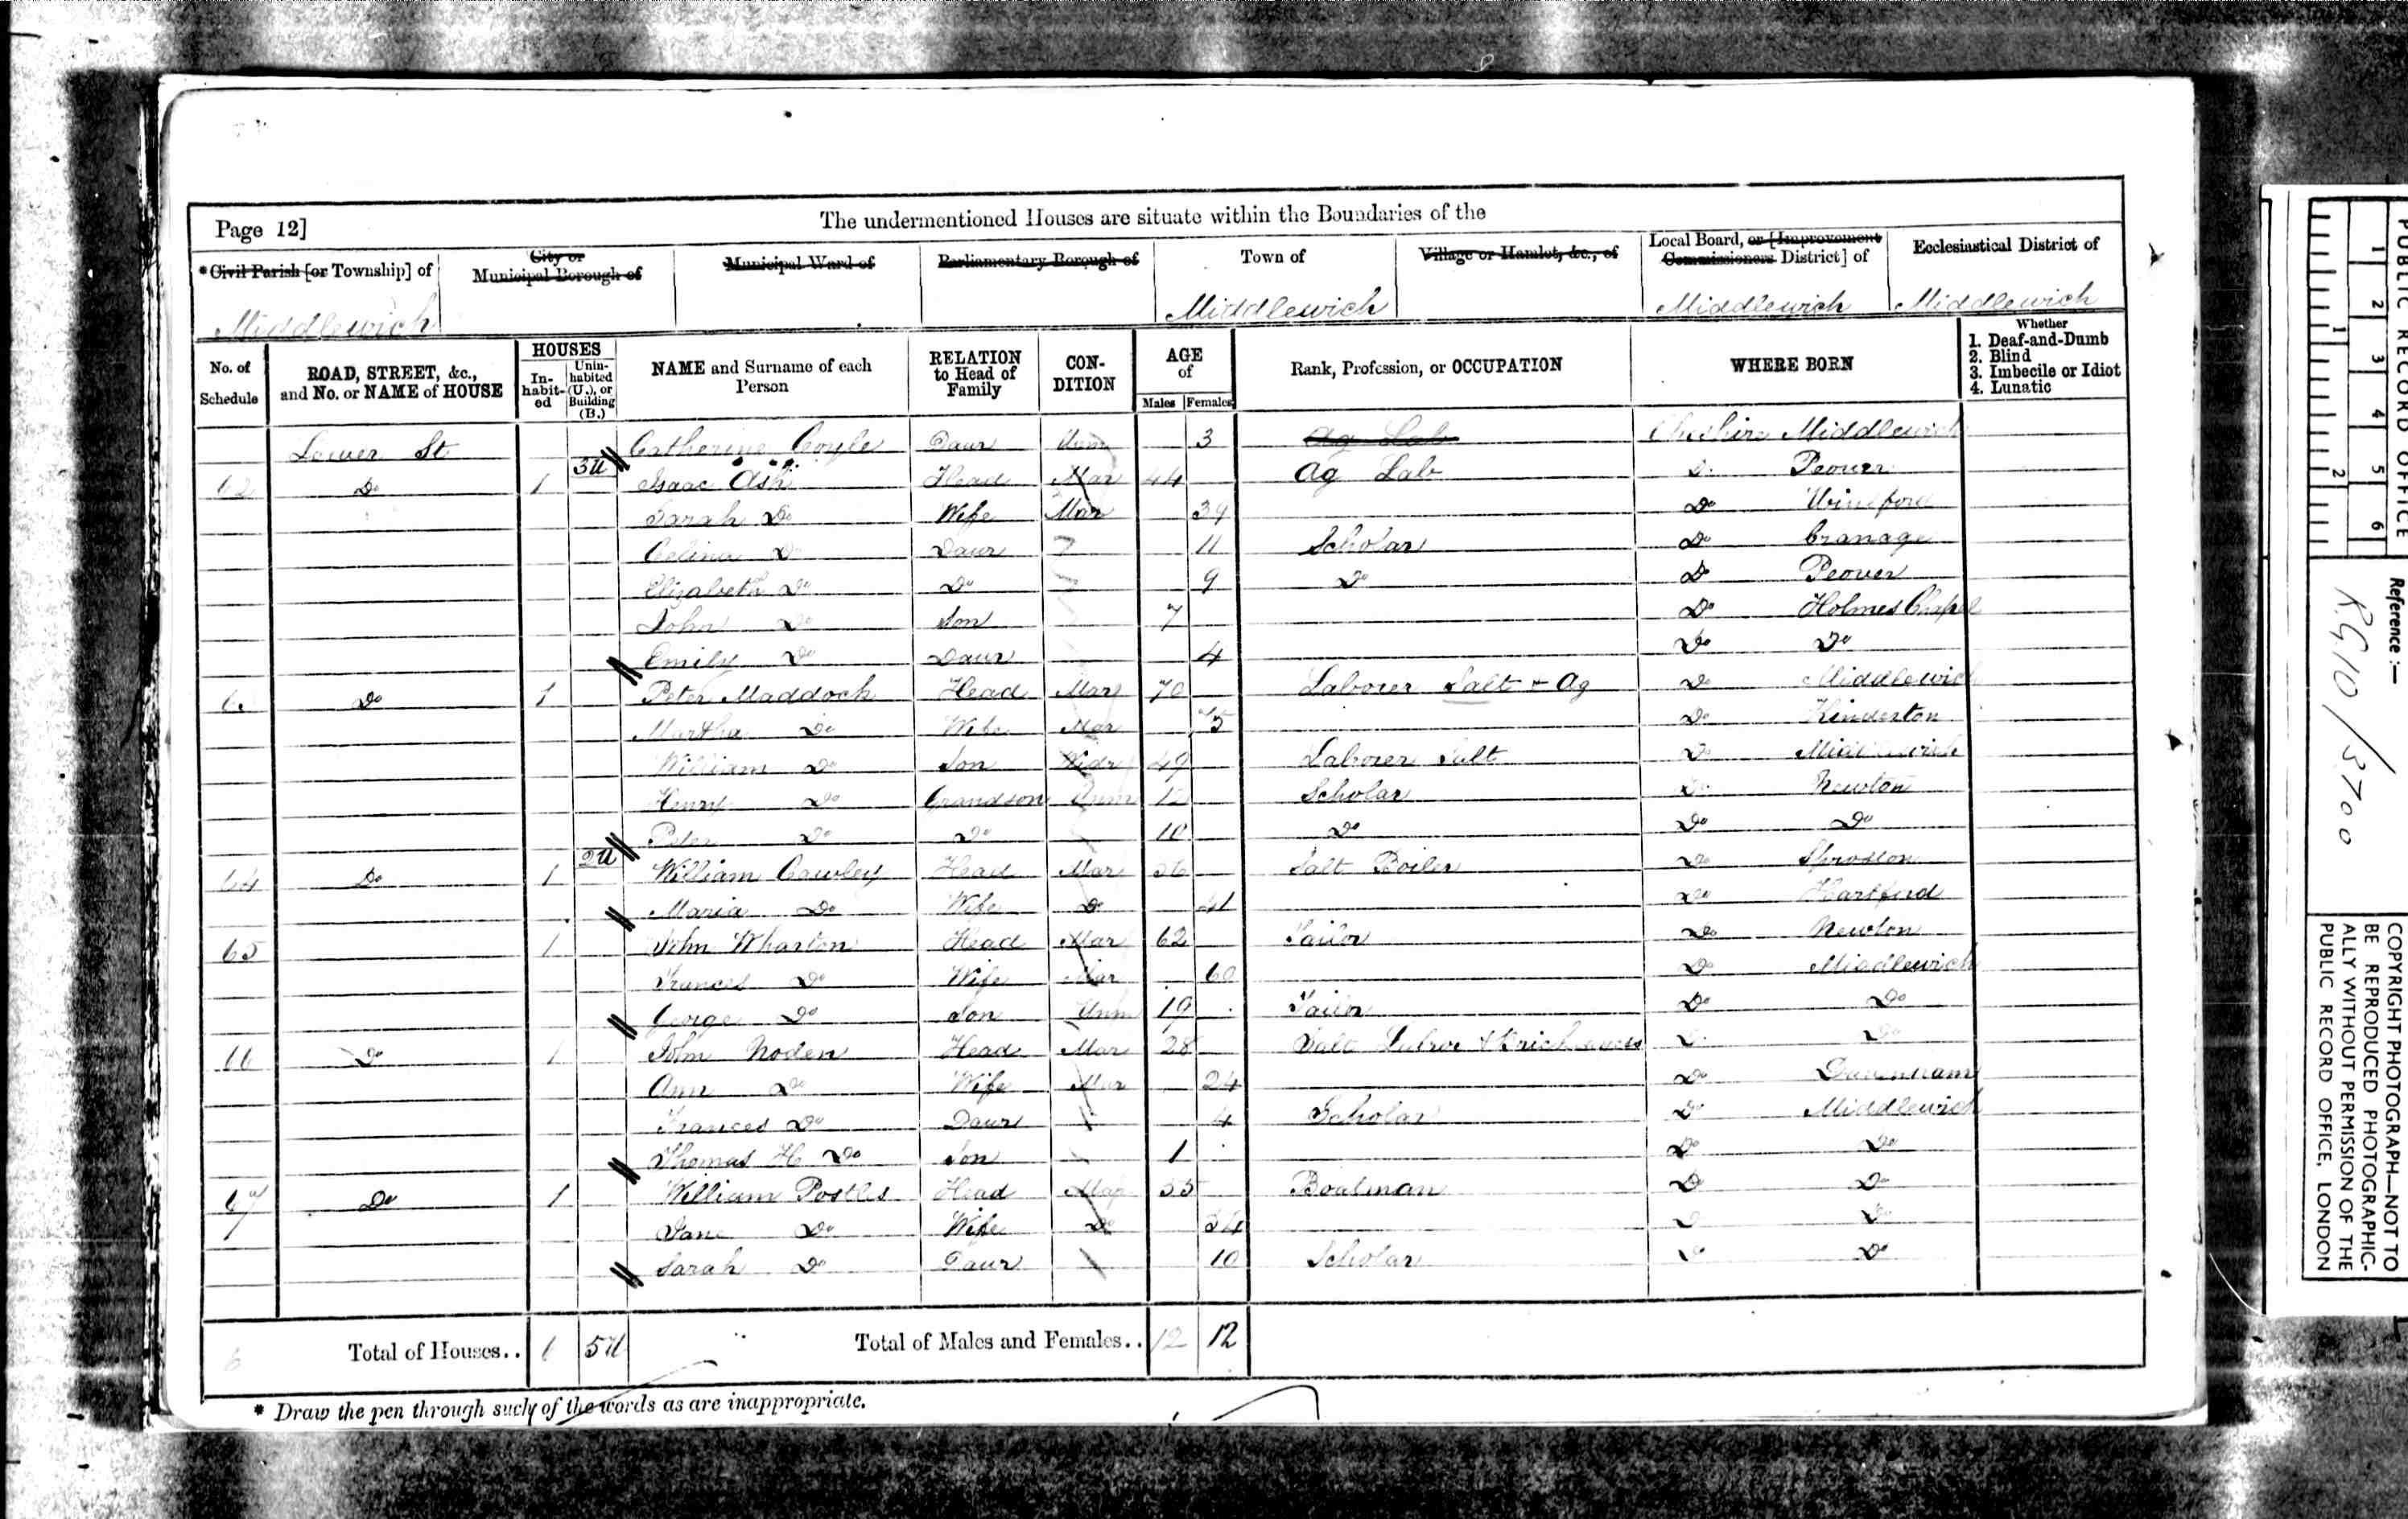 Page 12]
The undermentioned Houses are situate within the Boundaries of the
*Civil Parish [or Township] of
City or Municipal Borough of
Municipal Ward of
Parliamentary Borough of
Town of
Village or Hamlet, &c., of
Local Board, or [Improvement Commissioners District] of
Ecclesiastical District of
Middlewich
Middlewich
Middlewich
Middlewich
No. of Schedule
ROAD, STREET, &c., and No. or NAME of HOUSE
HOUSES
In-habit-ed
Unin-habited (U.), or Building (B.)
NAME and Surname of each Person
RELATION to Head of Family
CON-DITION
AGE of
Males
Females
Rank, Profession, or OCCUPATION
WHERE BORN
Whether
1. Deaf-and-Dumb
2. Blind
3. Imbecile or Idiot
4. Lunatic
Lower St Catherine Coyle Daur Unm 3 Ag Lab Cheshire Middlewich
62 Do 1 3U Isaac Ash Head Mar 44 Ag Lab Do Peover
Sarah Do Wife Mar 39 Do Winsford
Celina Do Daur 11 Scholar Do Cranage
Elizabeth Do Do 9 Do Do Peover
John Do Son 7 Do Holmes Chapel
Emily Do Daur 4 Do Do
Do 1 Peter Maddock Head Mar 70 Laborer Salt + Ag Do Middlewich
Martha Do Wife Mar 75 Do Kinderton
William Do Son Widr 49 Laborer Salt Do Middlewich
Henry Do Grandson Unm 12 Scholar Do Newton
Peter Do Do 10 Do Do Do
64 Do 1 2U William Cawley Head Mar 36 Salt Boiler Do Sproston
Maria Do Wife Do 41 Do Hartford
65 1 John Wharton Head Mar 62 Tailor Do Newton
Frances Do Wife Mar 60 Do Middlewich
George Do Son Unm 19 Tailor Do Do
66 Do 1 John Noden Head Mar 28 Salt Do Do
Ann Do Wife Mar 24 Do Davenham
Frances Do Daur 4 Scholar Do Middlewich
Thomas H Do Son 1 Do Do
67 Do 1 William Postles Head Mar 35 Boatman Do Do
Jane Do Wife Do 34 Do Do
Sarah Do Daur 10 Scholar Do Do
6 Total of Houses.. 6 5U Total of Males and Females.. 12 12
* Draw the pen through such of the words as are inappropriate.
PUBLIC RECORD OFFICE
1 2 3 4 5 6
1 2
Reference :—
RG 10 / 3700
COPYRIGHT PHOTOGRAPH—NOT TO
BE REPRODUCED PHOTOGRAPHIC-
ALLY WITHOUT PERMISSION OF THE
PUBLIC RECORD OFFICE, LONDON